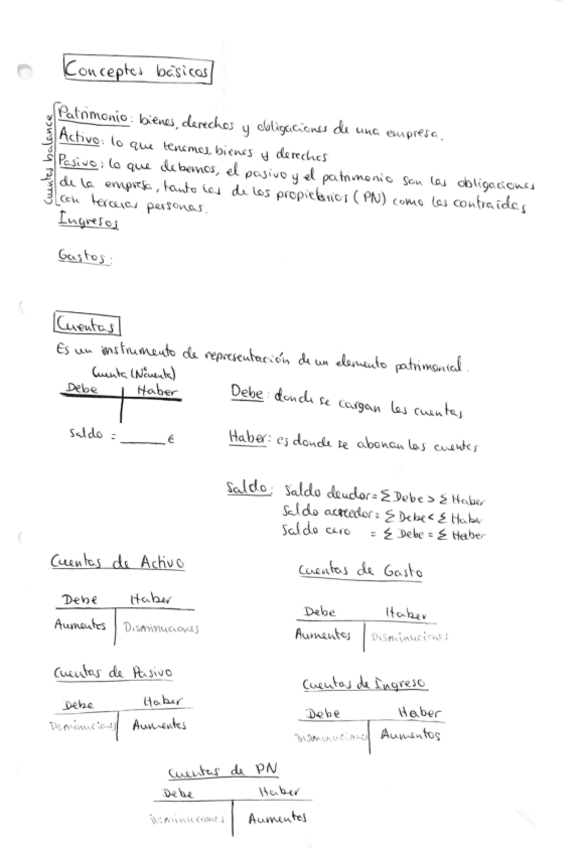 Conceptos básicos
Cuentas balance
Patrimonio: bienes, derechos y obligaciones de una empresa.
Activo: lo que tenemos, bienes y derechos
Pasivo: lo que debemos, el pasivo y el patrimonio son las obligaciones
de la empresa, tanto las de los propietarios (PN) como las contraídas
con terceras personas.
Ingresos
Gastos:
Cuentas
Es un instrumento de representación de un elemento patrimonial.
Cuenta (Nºcuenta)
Debe Haber
Saldo = ______ €
Debe: donde se cargan las cuentas
Haber: es donde se abonan las cuentas
Saldo: Saldo deudor = Σ Debe > Σ Haber
Saldo acreedor = Σ Debe < Σ Haber
Saldo cero = Σ Debe = Σ Haber
Cuentas de Activo
Debe Haber
Aumentos Disminuciones
Cuentas de Gasto
Debe Haber
Aumentos Disminuciones
Cuentas de Pasivo
Debe Haber
Disminuciones Aumentos
Cuentas de Ingreso
Debe Haber
Disminuciones Aumentos
Cuentas de PN
Debe Haber
Disminuciones Aumentos